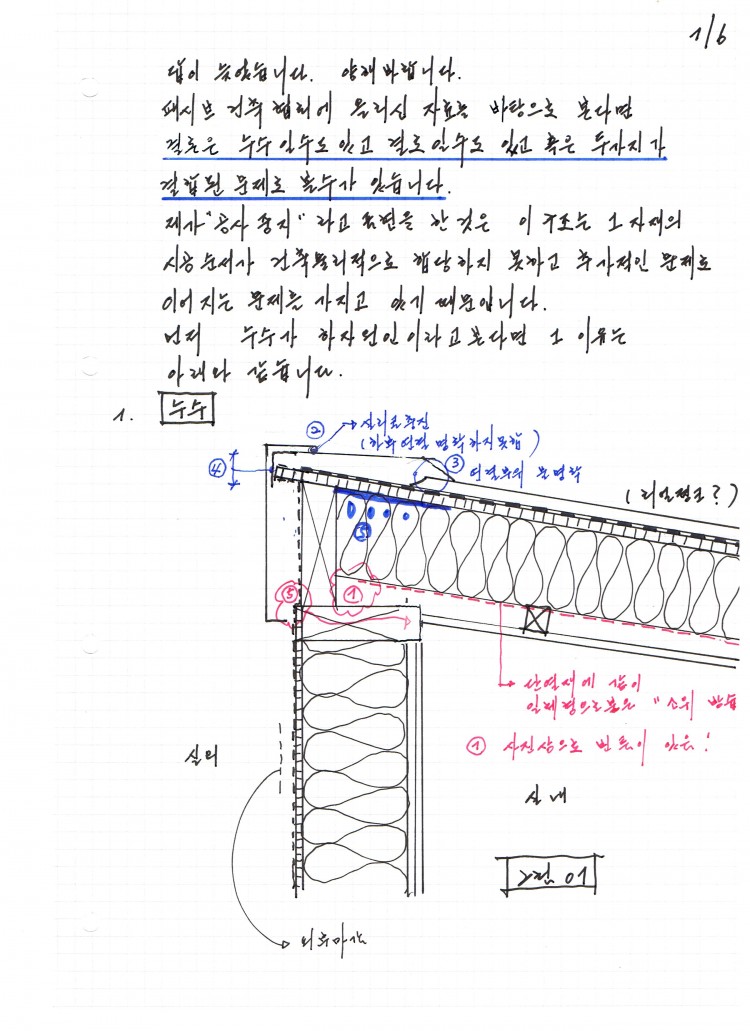 1/6
답이 늦었습니다. 양해바랍니다.
패시브 건축협회에 올리신 자료를 바탕으로 본다면
결로은 누수일수도 있고 결로일수도 있고 혹은 두가지가
결합된 문제로 볼수가 있습니다.
제가 "공사중지" 라고 표현을 한 것은 이 구조는 그 자재의
시공순서가 건축물리적으로 합당하지 못하고 추가적인 문제로
이어지는 문제를 가지고 있기 때문입니다.
먼저 누수가 하자원인이라고 본다면 그 이유는
아래와 같습니다.
1. 누수
② 실리콘충진
(하부연결 명확하지못함)
④
③ 연결부위 불명확
(리얼징크?)
⑤
⑤ ①
단열재에 같이
일체형으로붙은 "소위 방습
① 사진상으로 번트이 있음!
실외
실내
그림 01
외부마감